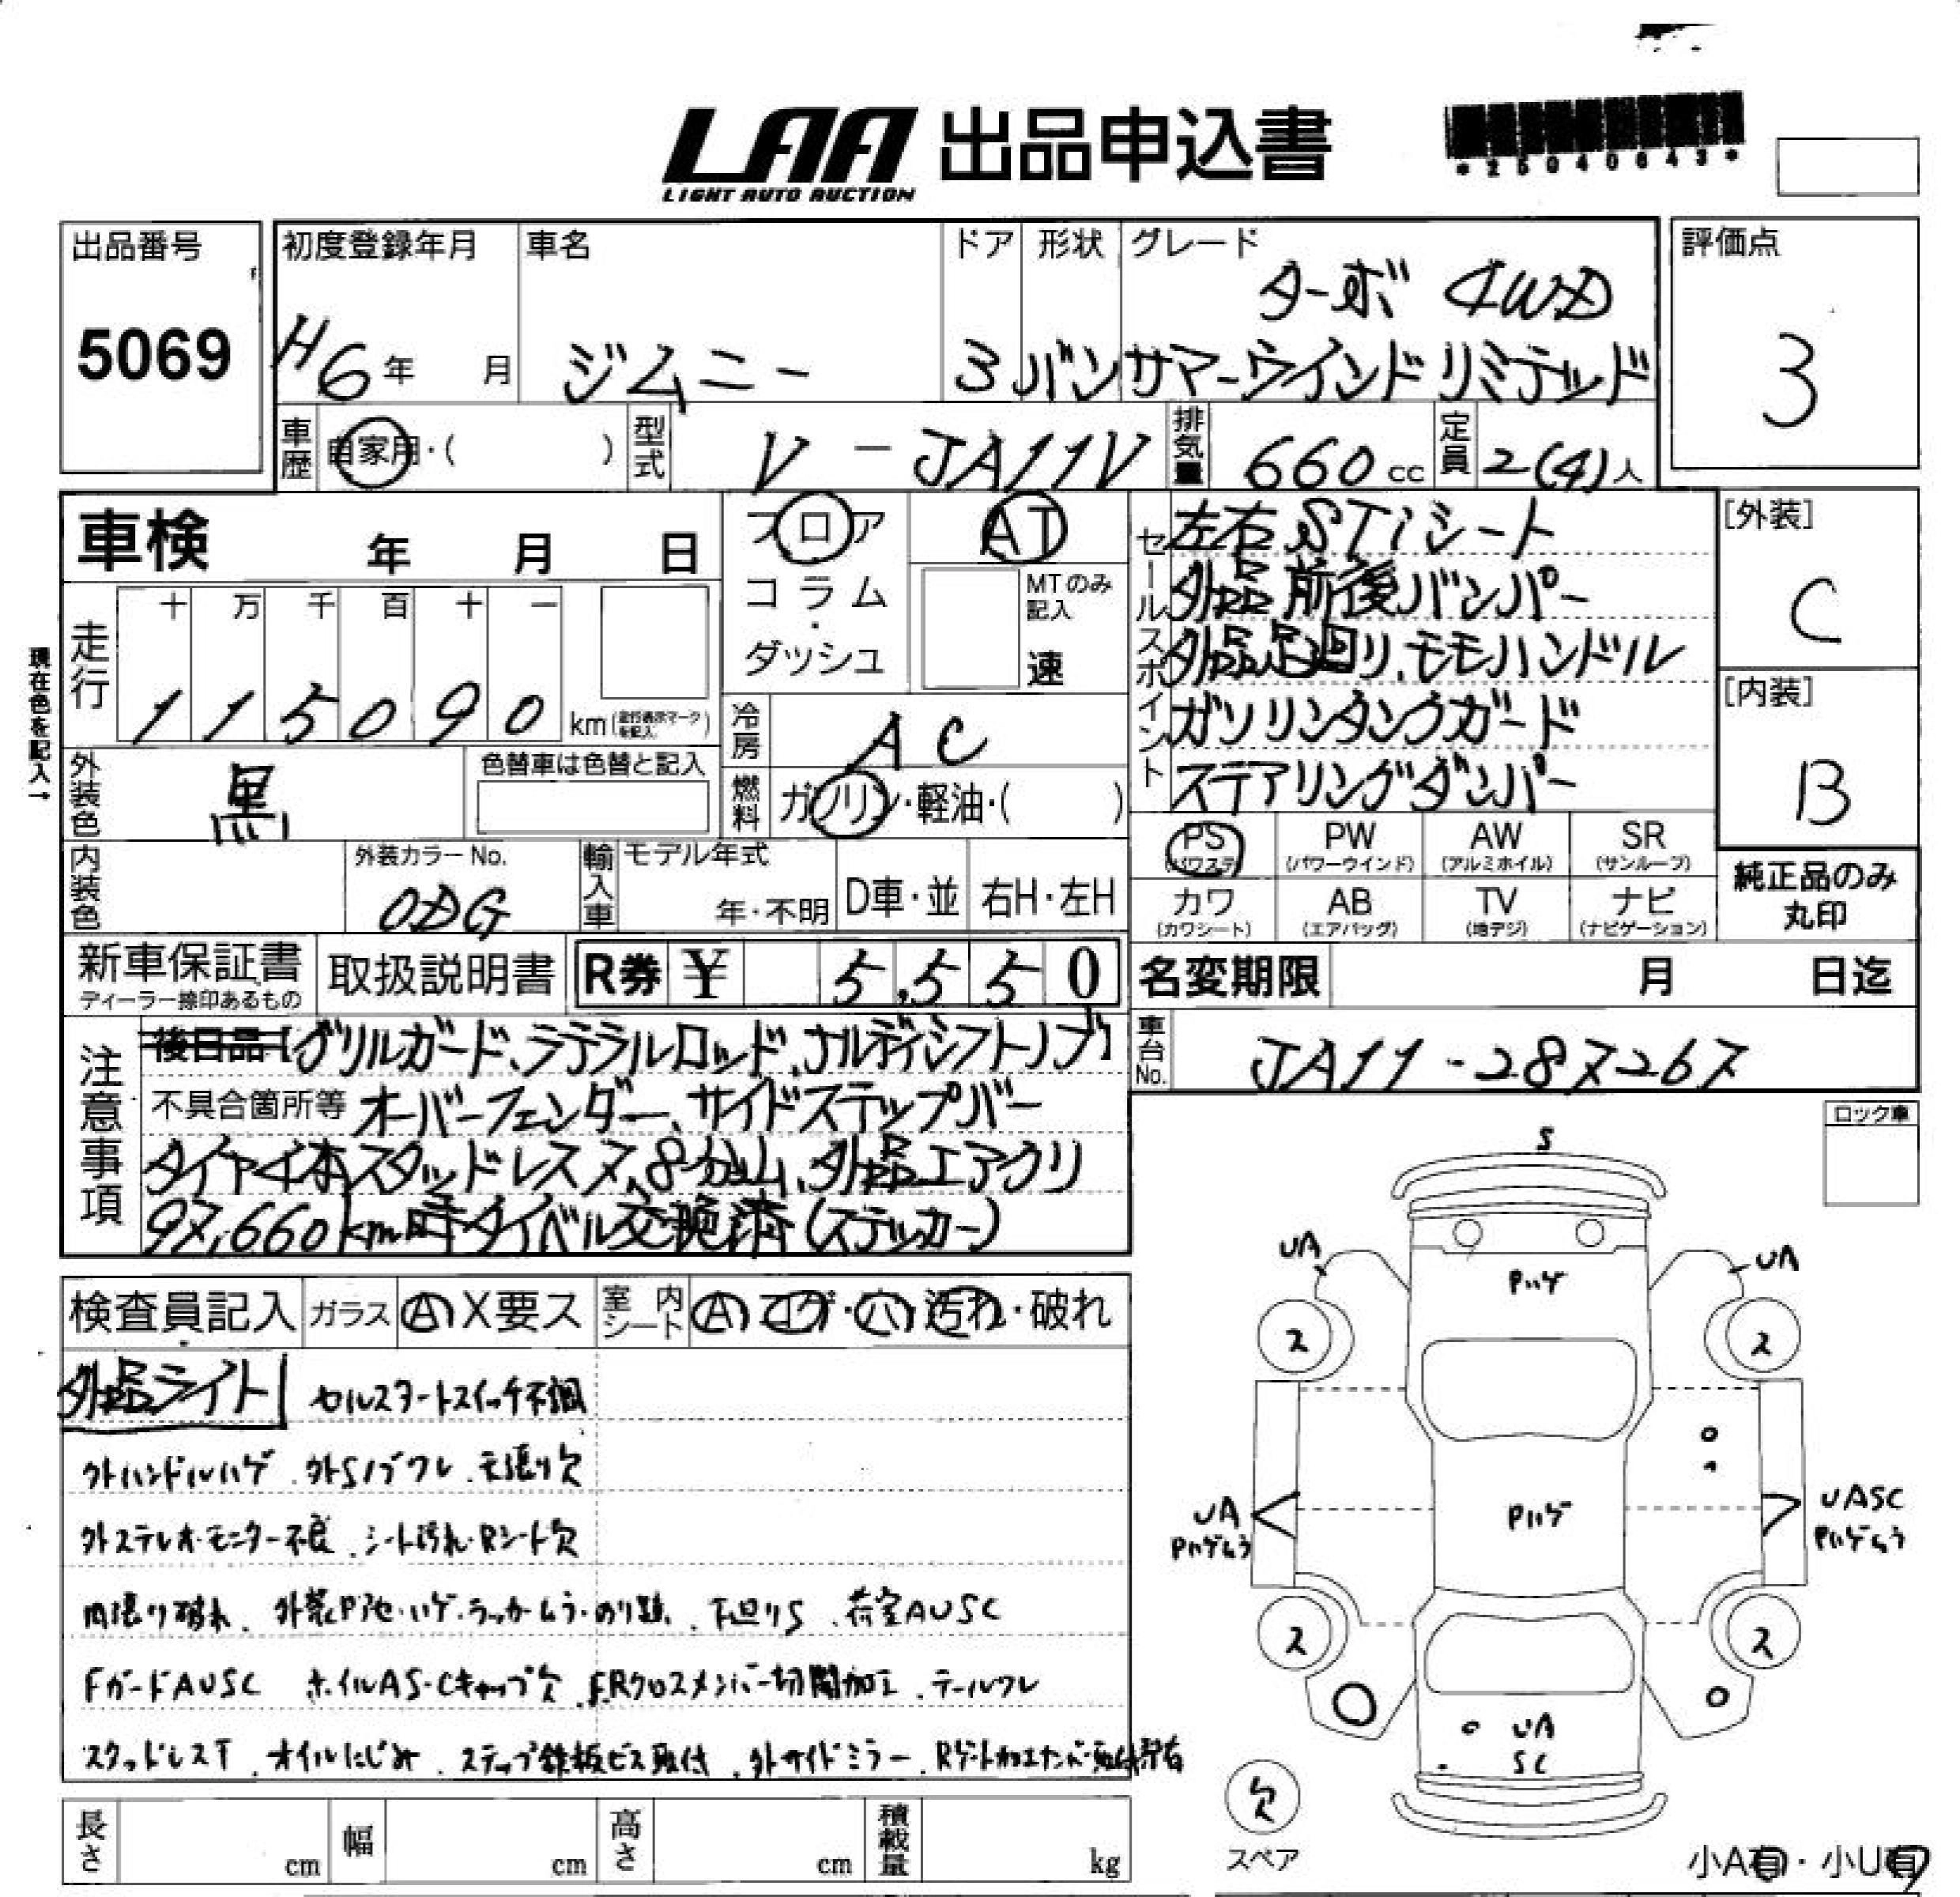 LAA 出品申込書
LIGHT AUTO AUCTION
*25040643*
出品番号
5069
初度登録年月
H6年 月
車名
ジムニー
ドア
3
形状
バン
グレード
ターボ 4WD
サマーウインドリミテッド
評価点
3
車歴
自家用・( )
型式
V-JA11V
排気量
660cc
定員
2(4)人
車検 年 月 日
フロア
コラム
・
ダッシュ
AT
MTのみ
記入
速
セールスポイント
左右STiシート
外品前後バンパー
外品足回り、モモハンドル
ガソリンタンクガード
ステアリングダンパー
[外装]
C
[内装]
B
現在色を記入→
走行
十 万 千 百 十 一
1 1 5 0 9 0 km
冷房
AC
外装色
黒
色替車は色替と記入
燃料
ガソリン・軽油・( )
内装色
外装カラーNo.
0DG
輸入車
モデル年式
年・不明
D車・並
右H・左H
PS
(パワステ)
PW
(パワーウインド)
AW
(アルミホイル)
SR
(サンルーフ)
カワ
(カワシート)
AB
(エアバッグ)
TV
(地デジ)
ナビ
(ナビゲーション)
純正品のみ
丸印
新車保証書
ディーラー捺印あるもの
取扱説明書
R券 ¥ 5,550
名変期限 月 日迄
車台No.
JA11-287267
注意事項
後日品[グリルガード、ラテラルロッド、ナルディシフトノブ]
不具合箇所等 オーバーフェンダー、サイドステップバー
タイヤ4本スタッドレス 7、8分山、外品エアクリ
97,660km時タイベル交換済(ステッカー)
ロック車
検査員記入
ガラス
A X要ス
室内シート
A コゲ・穴・汚れ・破れ
外品ライト セルスタートスイッチ不調
外ハンドルハゲ、外Sノブワレ、天張り欠
外ステレオ・モニター不良、シート汚れ・Rシート欠
内張り破れ、外装Pアセ・ハゲ・ラッカームラ・のり跡、下廻りS、荷室AUSC
FガードAUSC ホイルAS・Cキャップ欠、FRクロスメンバー切開加工、テールワレ
スタッドレスT、オイルにじみ、ステップ鉄板ビス取付、外サイドミラー、Rゲート加工ナンバー
S
UA
UA
Pハゲ
2
2
UA
Pハゲムラ
Pハゲ
UASC
Pハゲムラ
2
2
UA
SC
欠
スペア
小A有・小U有
長さ cm
幅 cm
高さ cm
積載量 kg